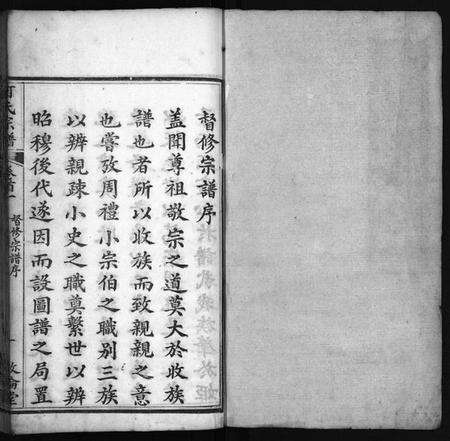 督修宗譜序
蓋聞尊祖敬宗之道莫大於收族
譜也者所以收族而致親親之意
也嘗攷周禮小宗伯之職別三族
以辨親疎小史之職奠繫世以辨
昭穆後代遂因而設圖譜之局置
氏宗譜
卷首一
督修宗譜序
一
敦倫堂